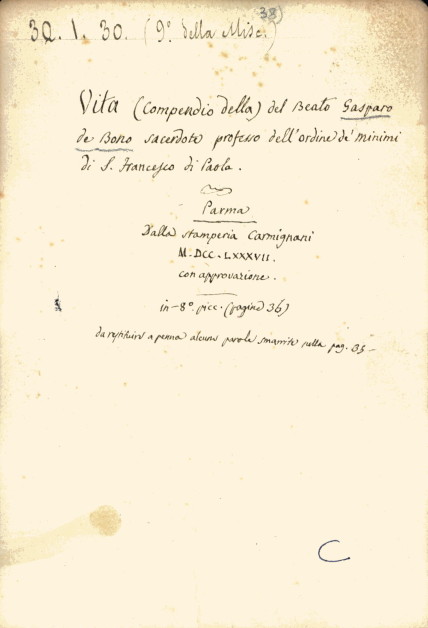 (38)
30. 1. 30. (9º della Misc.)
Vita (Compendio della) del Beato Gasparo
de Bono sacerdote professo dell'ordine de' minimi
di S. Francesco di Paola.
Parma
Dalla stamperia Carmignani
M.DCC.LXXXVII.
con approvazione.
in-8º. picc. (pagine 36)
da restituire a penna alcune parole smarrite nella pag. 35-
C